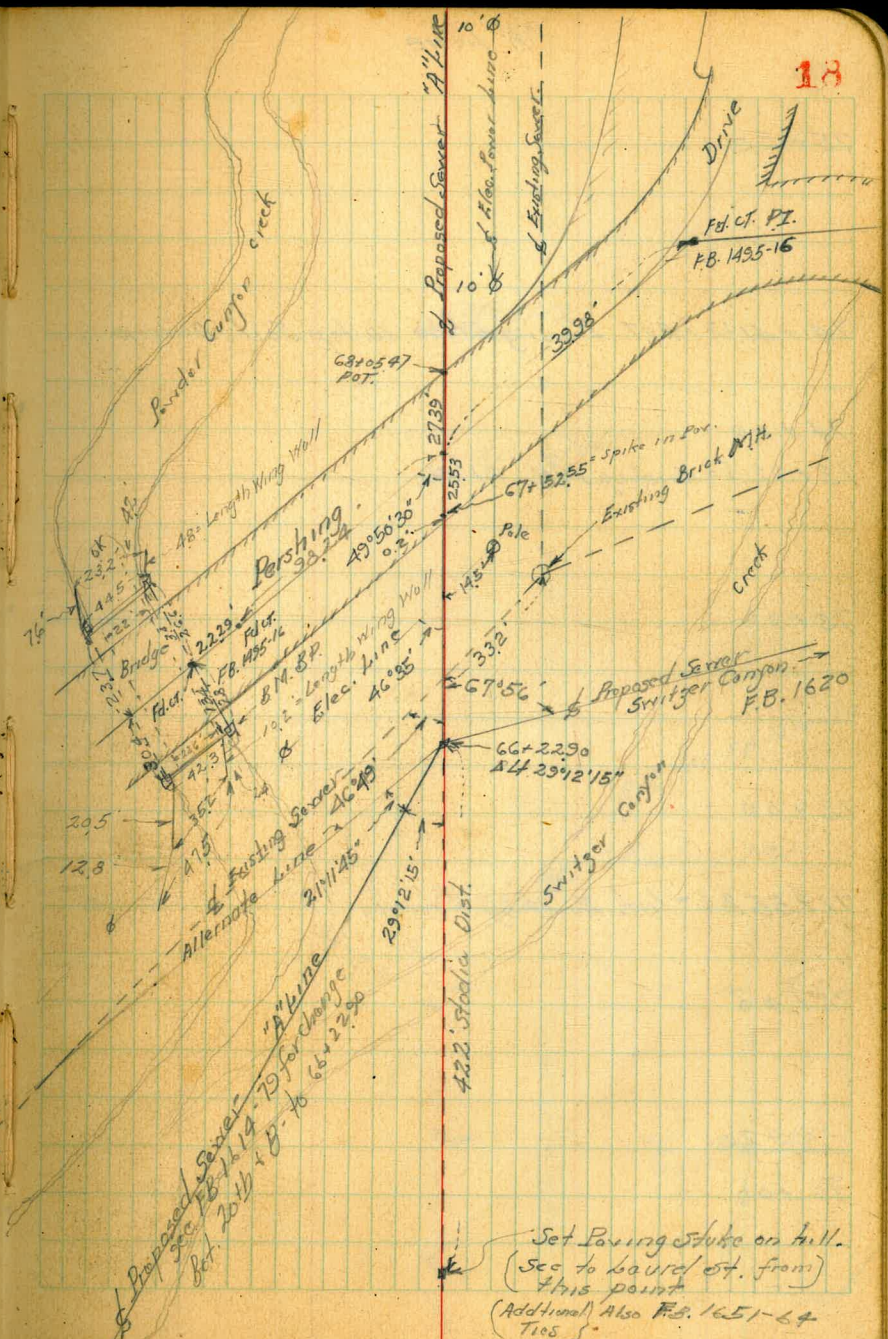 18
"A" Line
℄ Proposed Sewer
10'
℄ Elec. Power Line
℄ Existing Sewer.
10'
Drive
Fd. CT. P.I.
F.B. 1495-16
39.98'
Powder Canyon Creek
68+05.47
P.O.T.
27.39'
25.53
67+52.55 = Spike in Pav.
Existing Brick M.H.
48' = Length Wing Wall
Pershing
98.24
49°50'30"
0.2'
Pole
14.5'
33.2'
Creek
42'
OK
23.2'
44.5'
22'
7.6'
Bridge
22.29'
Fd. CT.
F.B. 1495-16
Fd. CT.
B.M. B.P.
10.2' = Length Wing Wall
Elec. Line
46°35'
67°56'
℄ Proposed Sewer
Switzer Canyon
F.B. 1620
66+22.90
Δ Lt 29°12'15"
42.3'
24
35.2
47.5
20.5
12.8
℄ Existing Sewer
46°49'
Alternate Line
21°11'45"
29°12'15"
Switzer Canyon
422' Stadia Dist.
℄ Proposed Sewer "A" Line
See F.B. 1614-79 for change
Bet. 20th & B- to 66+22.90
Set Paving Stake on hill.
(See to Laurel St. from)
this point
(Additional) Also F.B. 1651-64
Ties